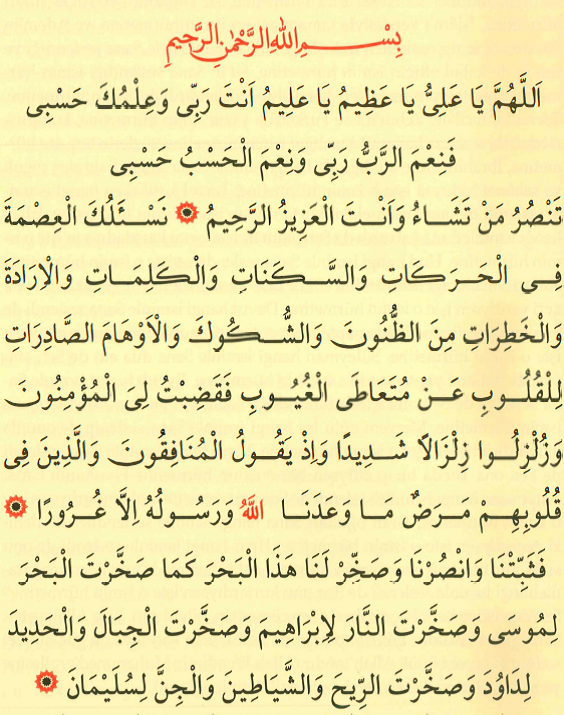 بِسْــــمِ اللهِ الرَّحْمٰنِ الرَّحِيمِ
اَللّٰهُمَّ يَا عَلِىُّ يَا عَظِيمُ يَا عَلِيمُ اَنْتَ رَبِّى وَعِلْمُكَ حَسْبِى
فَنِعْمَ الرَّبُّ رَبِّى وَنِعْمَ الْحَسْبُ حَسْبِى
تَنْصُرُ مَنْ تَشَاءُ وَاَنْتَ الْعَزِيزُ الرَّحِيمُ ۞ نَسْئَلُكَ الْعِصْمَةَ
فِى الْحَرَكَاتِ وَالسَّكَنَاتِ وَالْكَلِمَاتِ وَالْاِرَادَةِ
وَالْخَطَرَاتِ مِنَ الظُّنُونِ وَالشُّكُوكِ وَالْاَوْهَامِ الصَّادِرَاتِ
لِلْقُلُوبِ عَنْ مُتَعَاطَى الْغُيُوبِ فَقَضِبْتُ لِىَ الْمُؤْمِنُونَ
وَزُلْزِلُوا زِلْزَالًا شَدِيدًا وَاِذْ يَقُولُ الْمُنَافِقُونَ وَالَّذِينَ فِى
قُلُوبِهِمْ مَرَضٌ مَا وَعَدَنَا اللهُ وَرَسُولُهُ اِلَّا غُرُورًا ۞
فَثَبِّتْنَا وَانْصُرْنَا وَصَخِّرْ لَنَا هَذَا الْبَحْرَ كَمَا صَخَّرْتَ الْبَحْرَ
لِمُوسَى وَصَخَّرْتَ النَّارَ لِاِبْرَاهِيمَ وَصَخَّرْتَ الْجِبَالَ وَالْحَدِيدَ
لِدَاوُدَ وَصَخَّرْتَ الرِّيحَ وَالشَّيَاطِينَ وَالْجِنَّ لِسُلَيْمَانَ ۞